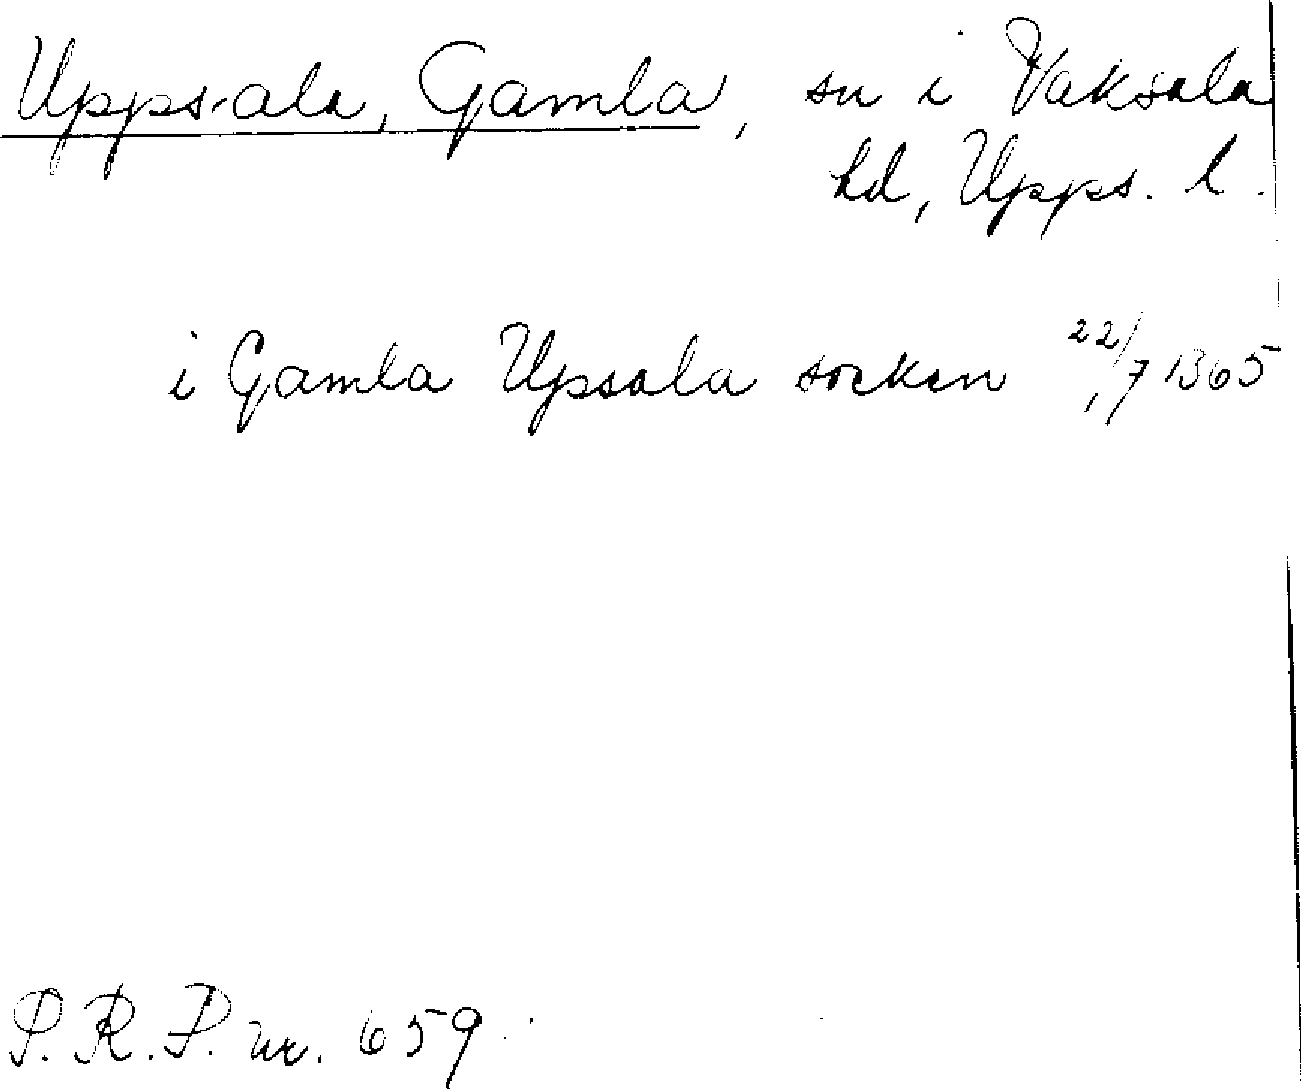 Uppsala, Gamla, sn i Vaksala
hd, Upps. l.
i Gamla Upsala socken 22/7 1365
P.R.P. nr. 659